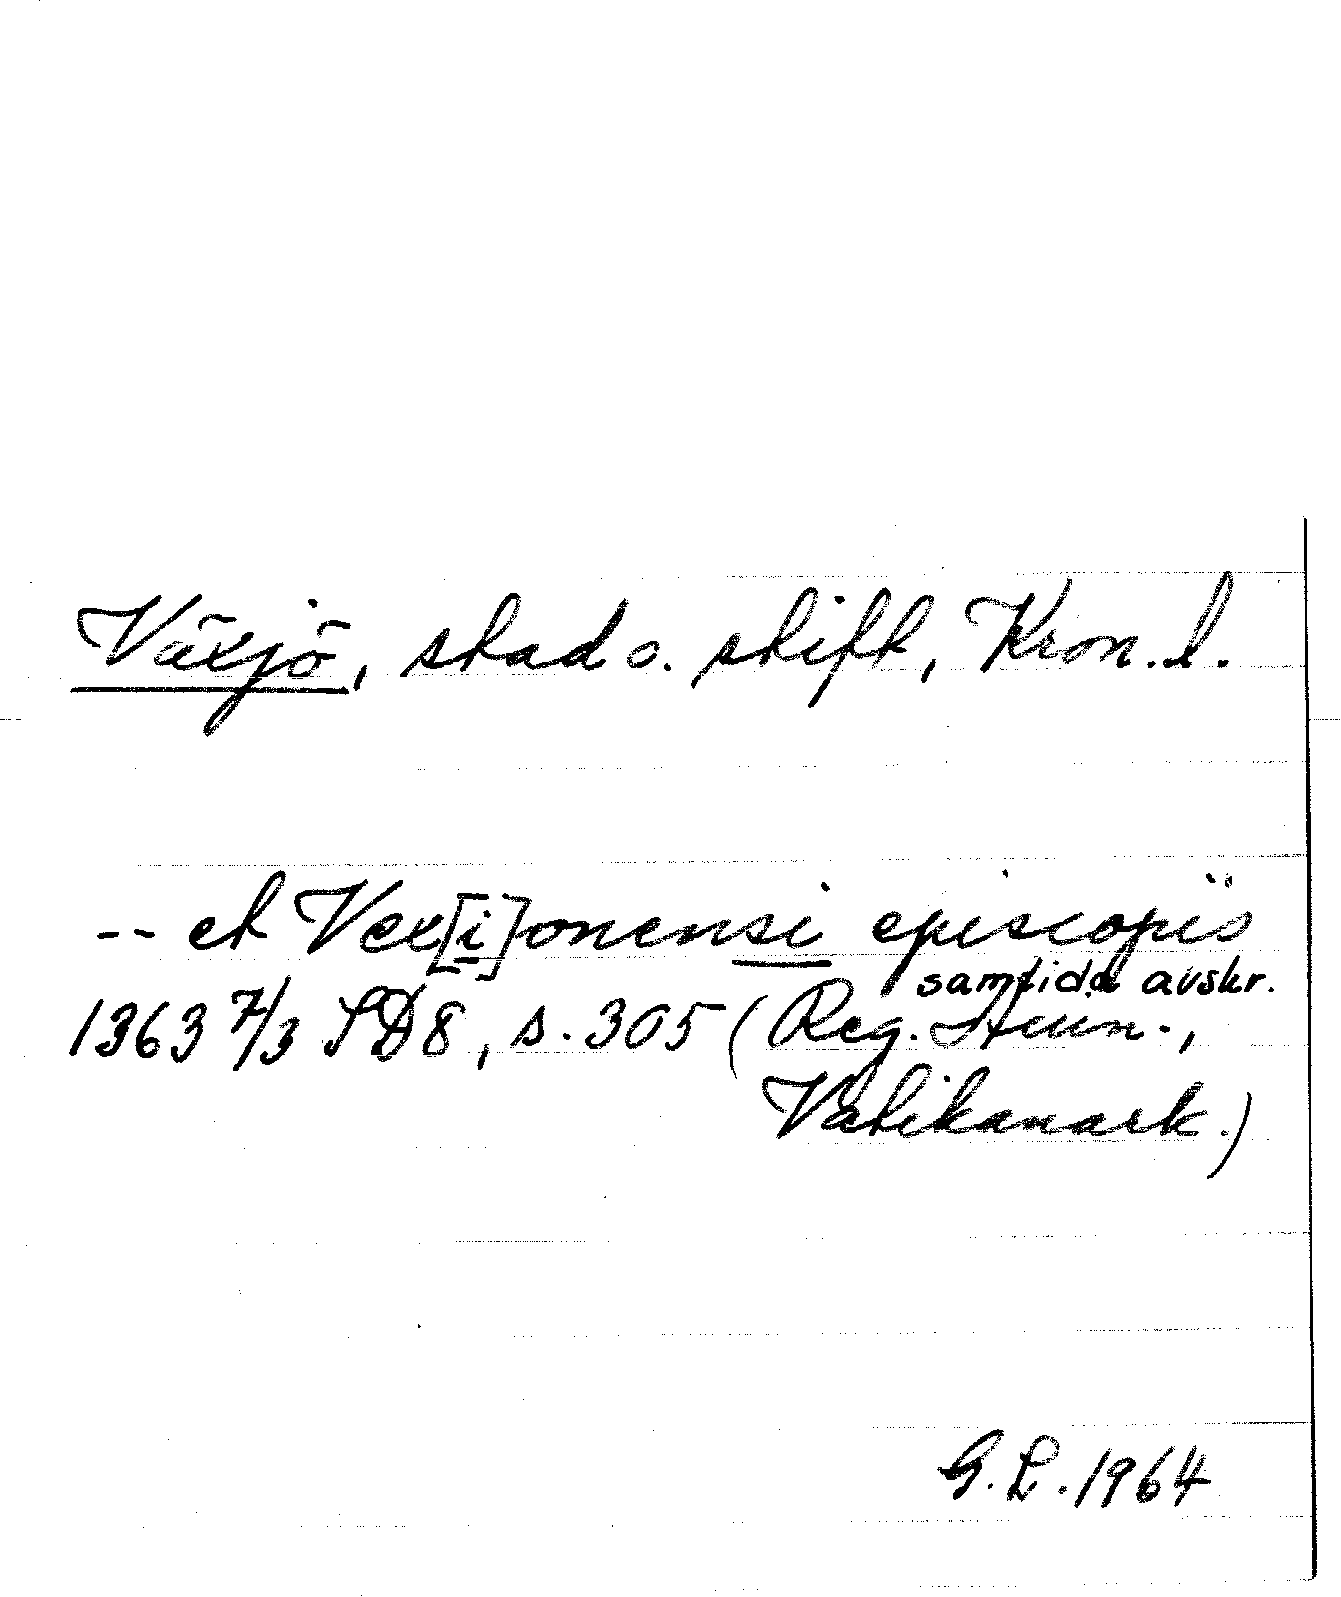 Växjö, stad o. stift, Kron. l.
-- et Vex[i]onensi episcopis
samtida avskr.
1363 7/3 SD8, s. 305 (Reg. Aven.,
Vatikanark.)
G. L. 1964